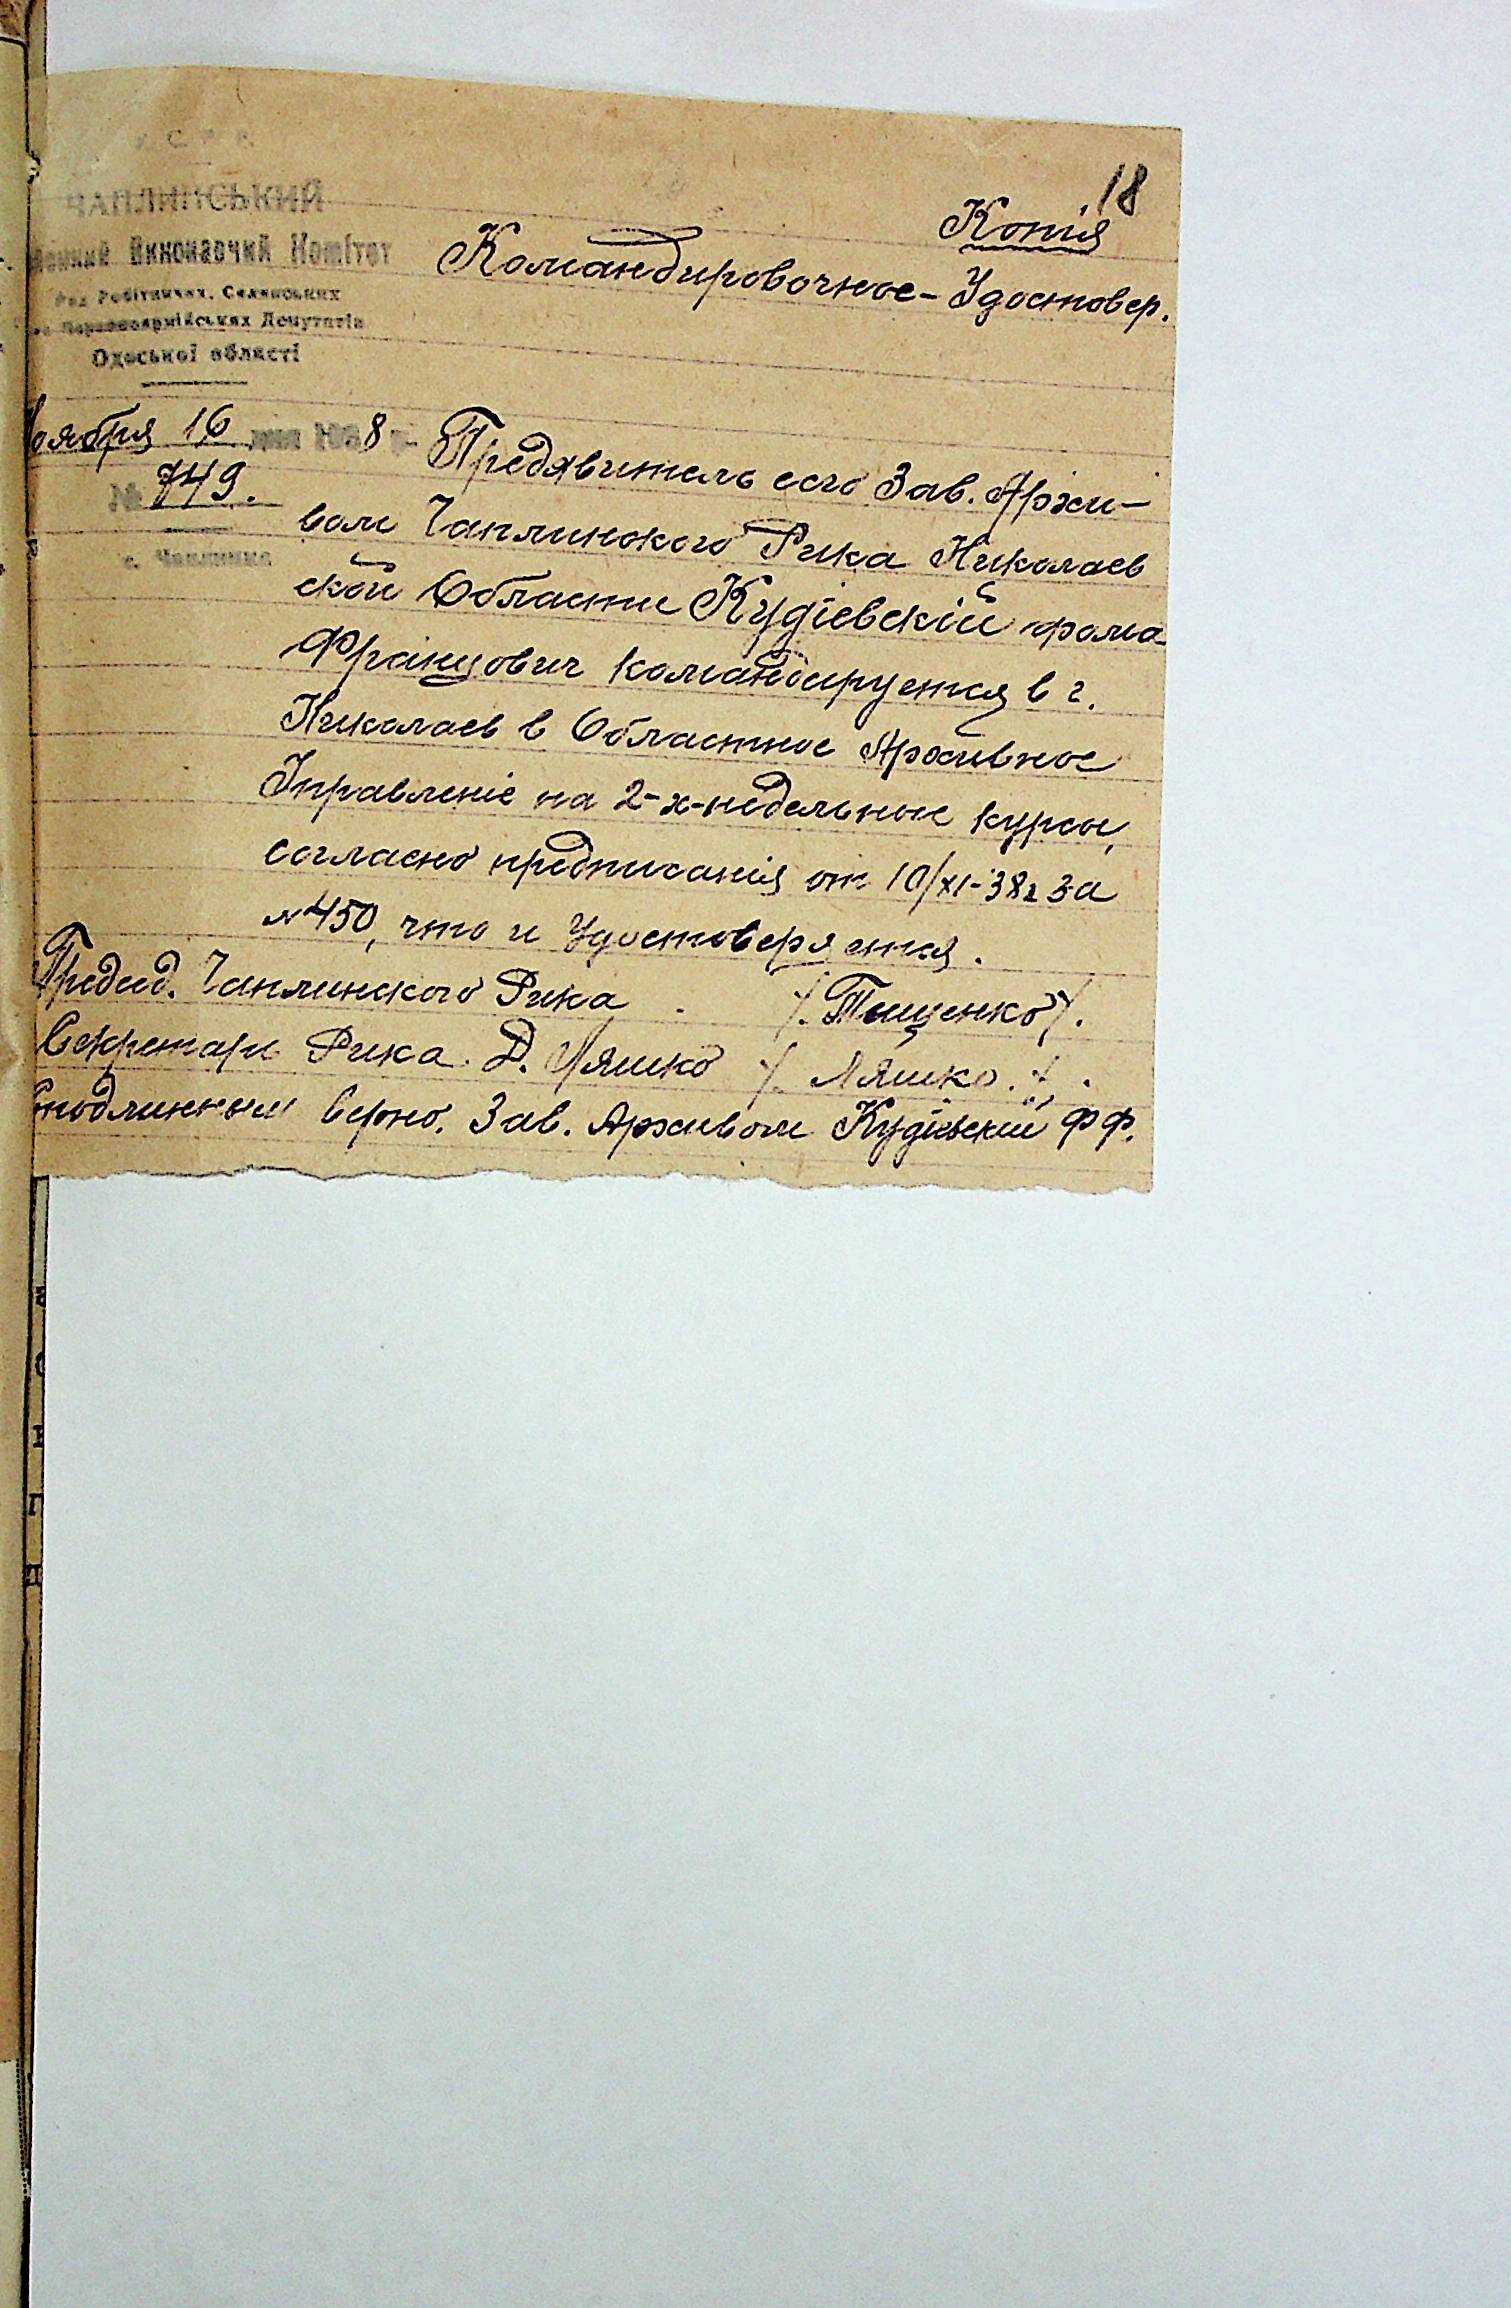 18
Копія
У. С. Р. Р.
ЧАПЛИНСЬКИЙ
Виконавчий Комітет
Рад Робітничих, Селянських
Червоноармійських Депутатів
Одеської області
Командировочное - Удостовер.
ноября 16 дня 1938 р.
№ 749.
с. Чаплинка
Предявитель сего Зав. Архи-
вом Чаплинского Рика Николаев
ской Области Кудіевскій Фома
Францович командируется в г.
Николаев в Областное Архивное
Управленіе на 2-х-недельные курсы,
согласно предписанія от 10/XI-38г за
№ 450, что и Удостоверяется.
Председ. Чаплинского Рика /. Тыщенко /.
Секретарь Рика Д. Ляшко /. Ляшко. /.
подлинным верно. Зав. Архивом Кудіевскій Ф Ф.